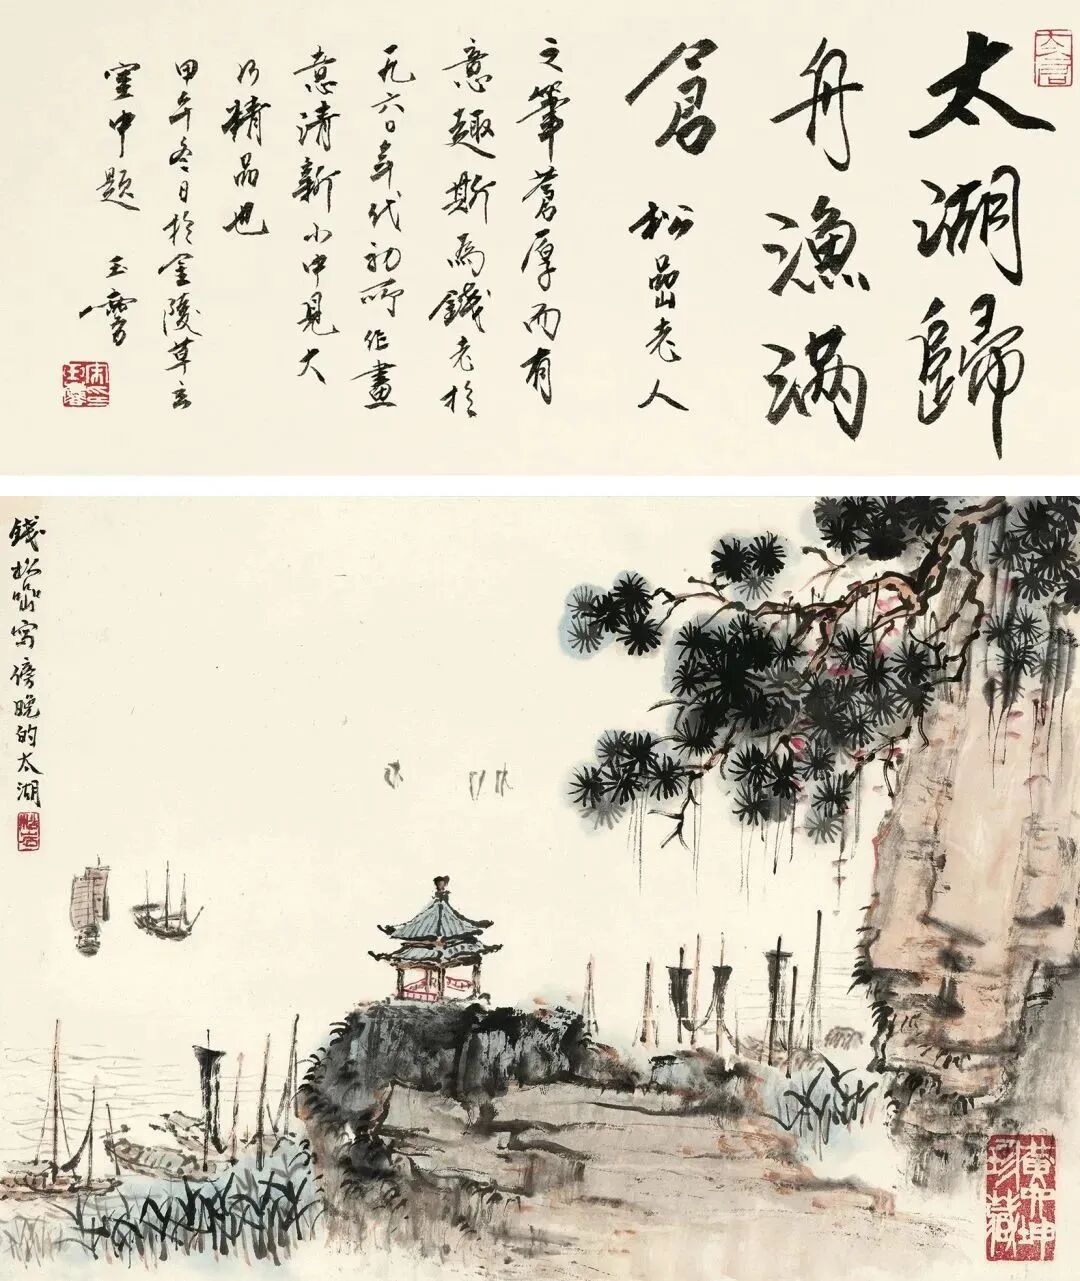 太湖歸
舟漁滿
倉 松喦老人
之筆蒼厚而有
意趣斯為錢老於
一九六〇年代初所作畫
意清新小中見大
乃精品也
甲午冬日於金陵草玄
堂中題 玉麐
錢松喦寫傍晚的太湖
珍藏